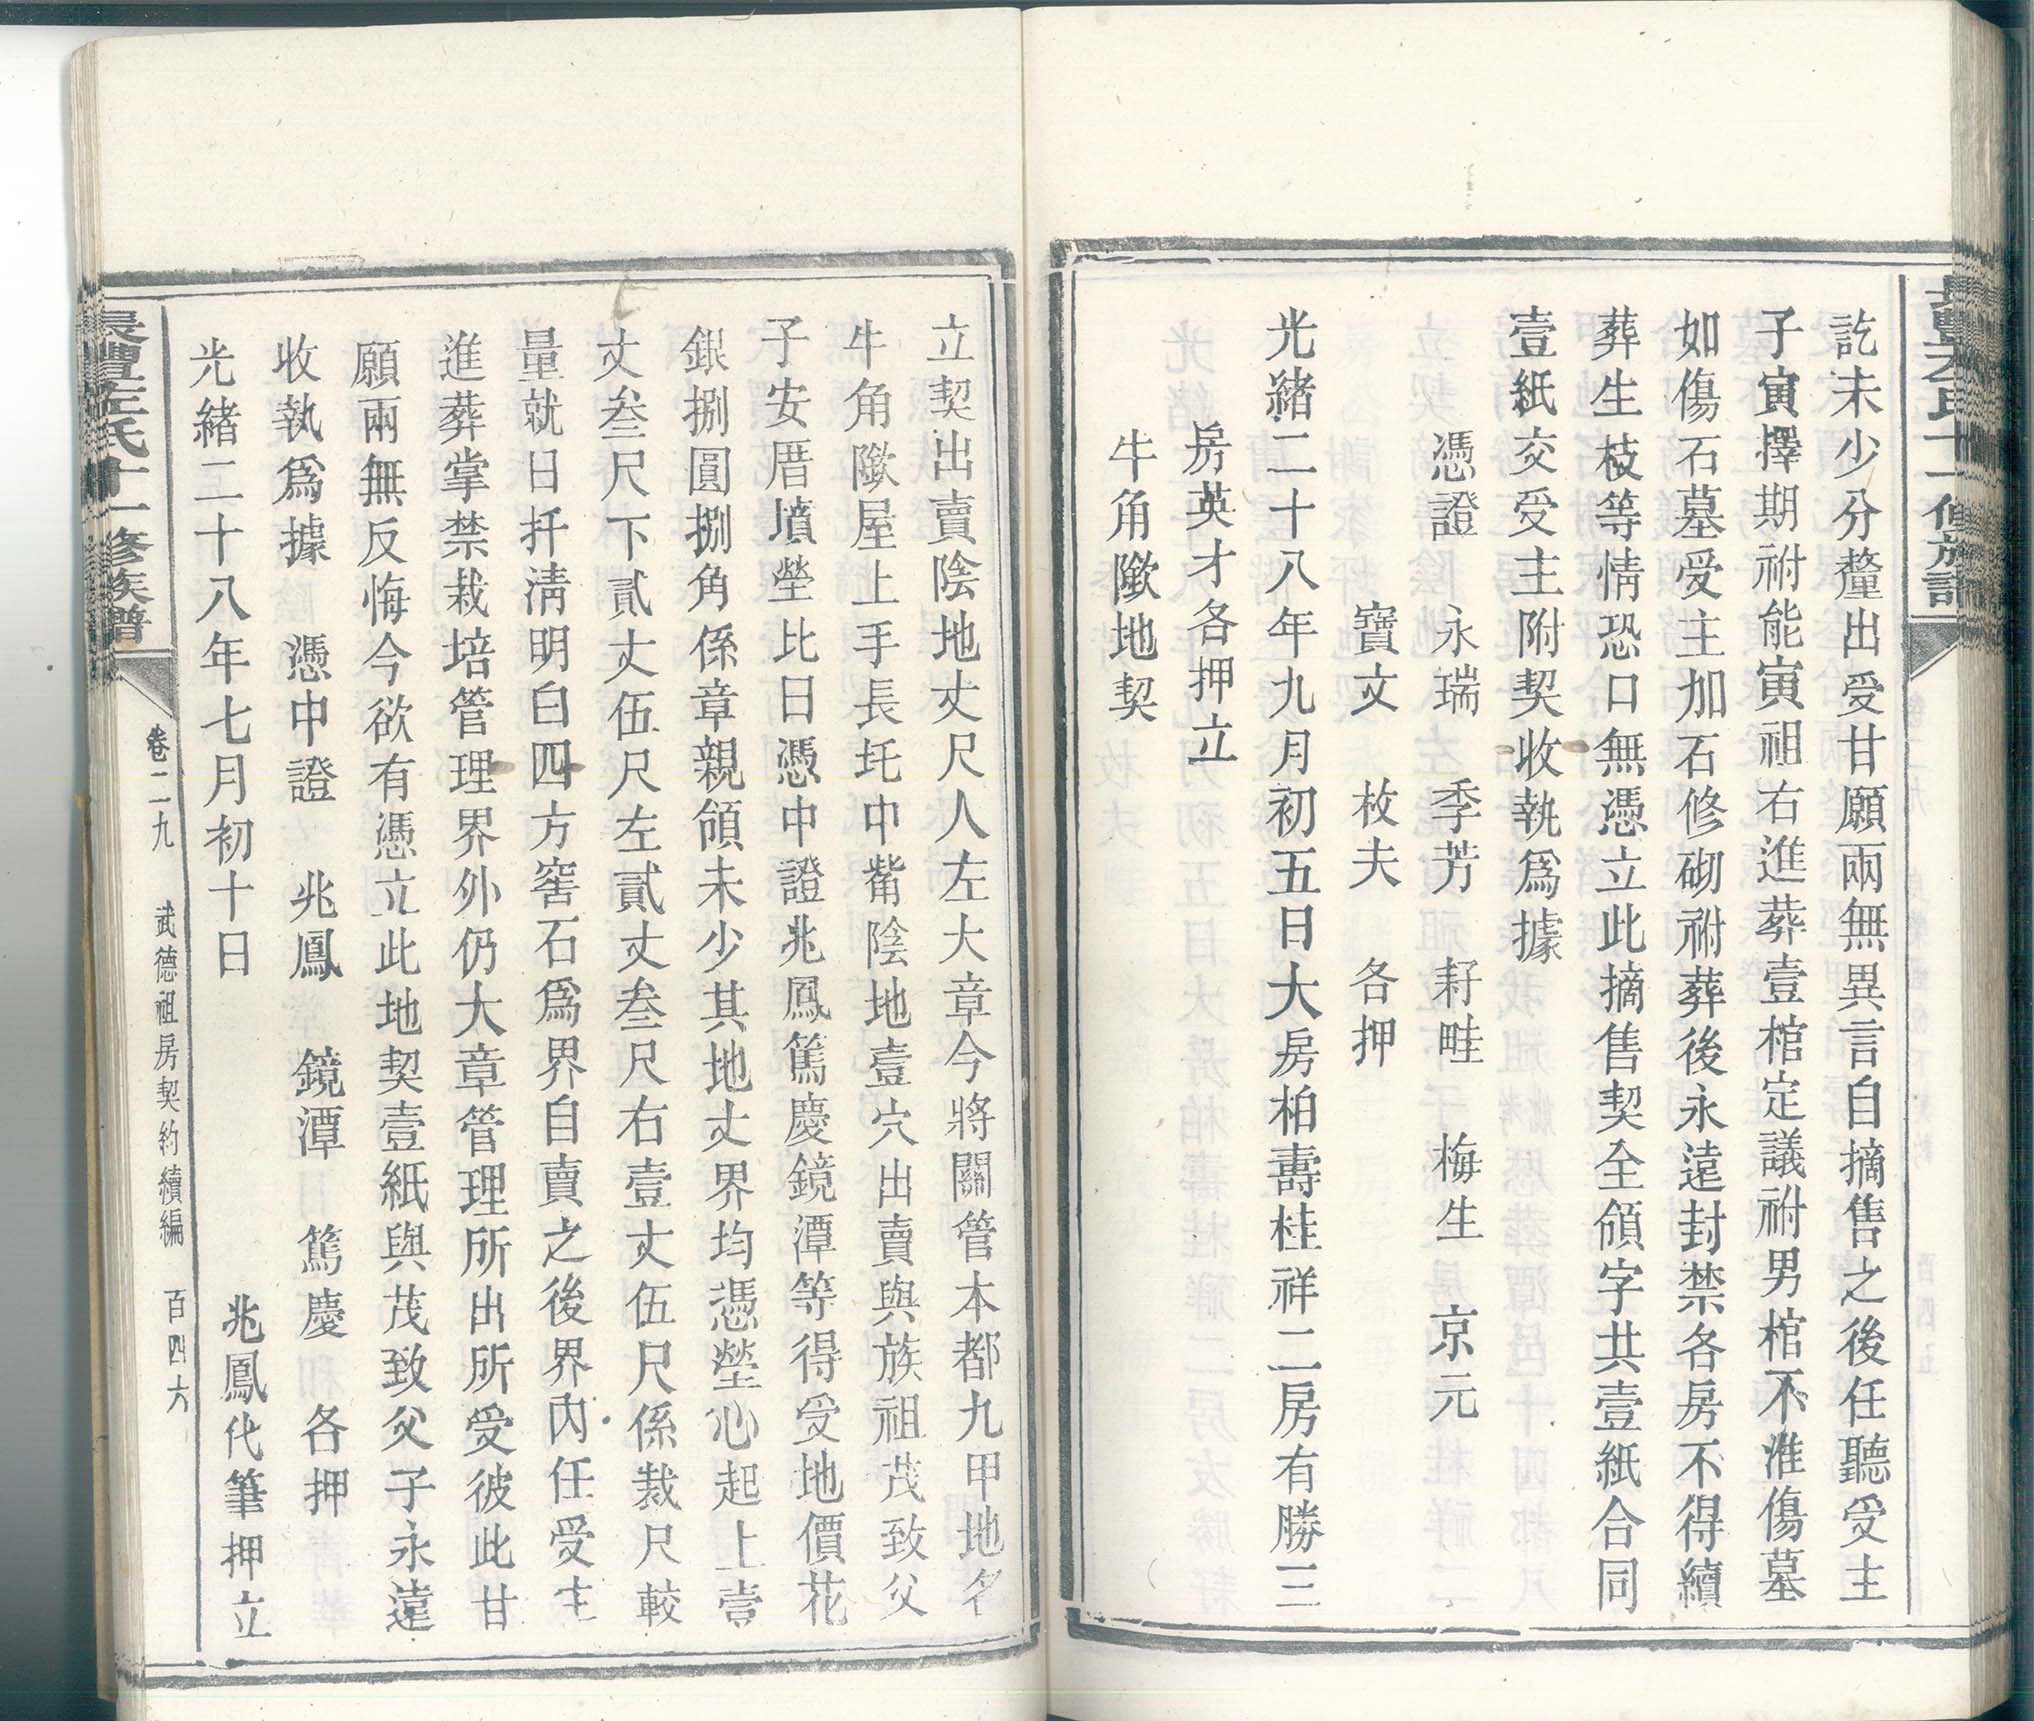 訖未少分釐出受甘願兩無異言自摘售之後任聽受主
子寅擇期祔能寅祖右進葬壹棺定議祔男棺不准傷墓
如傷石墓受主加石修砌祔葬後永遠封禁各房不得續
葬生枝等情恐口無憑立此摘售契全領字共壹紙合同
壹紙交受主附契收執爲據
憑證 永瑞 季芳 耔畦 梅生 京元
寶文 枚夫 各押
光緒二十八年九月初五日大房柏壽桂祥二房有勝三
房英才各押立
牛角隞地契
立契出賣陰地丈尺人左大章今將關管本都九甲地名
牛角隞屋上手長圫中觜陰地壹穴出賣與族祖茂致父
子安厝墳塋比日憑中證兆鳳篤慶鏡潭等得受地價花
銀捌圓捌角係章親領未少其地丈界均憑塋心起上壹
丈叁尺下貳丈伍尺左貳丈叁尺右壹丈伍尺係裁尺較
量就日扦淸明白四方窖石爲界自賣之後界內任受主
進葬掌禁栽培管理界外仍大章管理所出所受彼此甘
願兩無反悔今欲有憑立此地契壹紙與茂致父子永遠
收執爲據 憑中證 兆鳳 鏡潭 篤慶 各押
光緒二十八年七月初十日 兆鳳代筆押立
左氏十一修族譜
卷二九 武德祖房契約續編 百四六